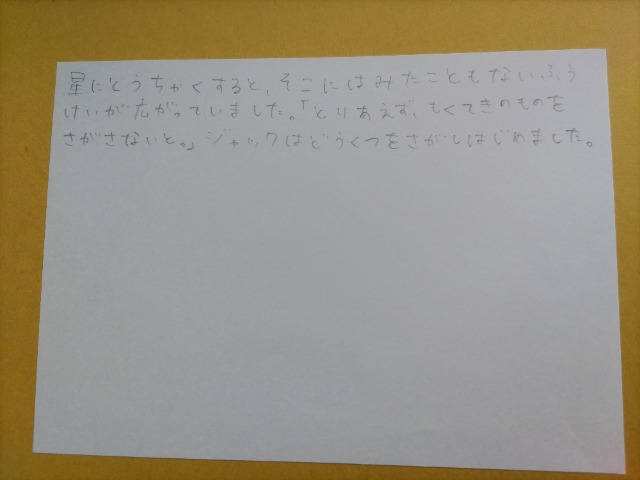 星にとうちゃくすると、そこにはみたこともないふう
けいが広がっていました。「とりあえず、もくてきのものを
さがさないと。」ジャックはどうくつをさがしはじめました。